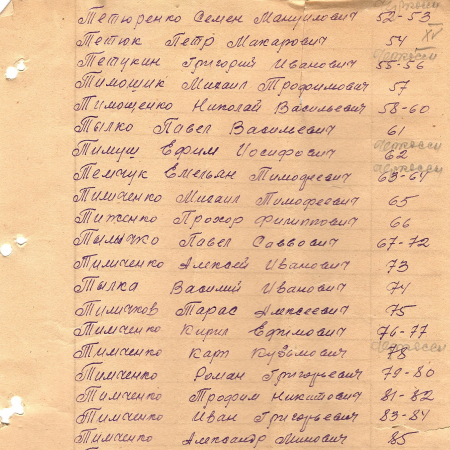 Петюренко Семен Мануилович 52-53
Петюк Петр Макарович 54 XV
Петукин Григорий Иванович 55-56
Тимощик Михаил Трофимович 57
Тимощенко Николай Васильевич 58-60
Тылко Павел Васильевич 61
Тимуш Ефим Иосифович 62
Темчук Емельян Тимофеевич 63-64
Тимченко Михаил Тимофеевич 65
Тиженко Прохор Филиппович 66
Павел Саввович 67-72
Тимченко Алексей Иванович 73
Тылка Василий Иванович 74
Тимчков Тарас Алексеевич 75
Тимченко Кирил Ефимович 76-77
Тимченко Карп Кузьмович 78
Тимченко Роман Григорьевич 79-80
Тимченко Трофим Никитович 81-82
Тимченко Иван Григорьевич 83-84
Тимченко Александр 85